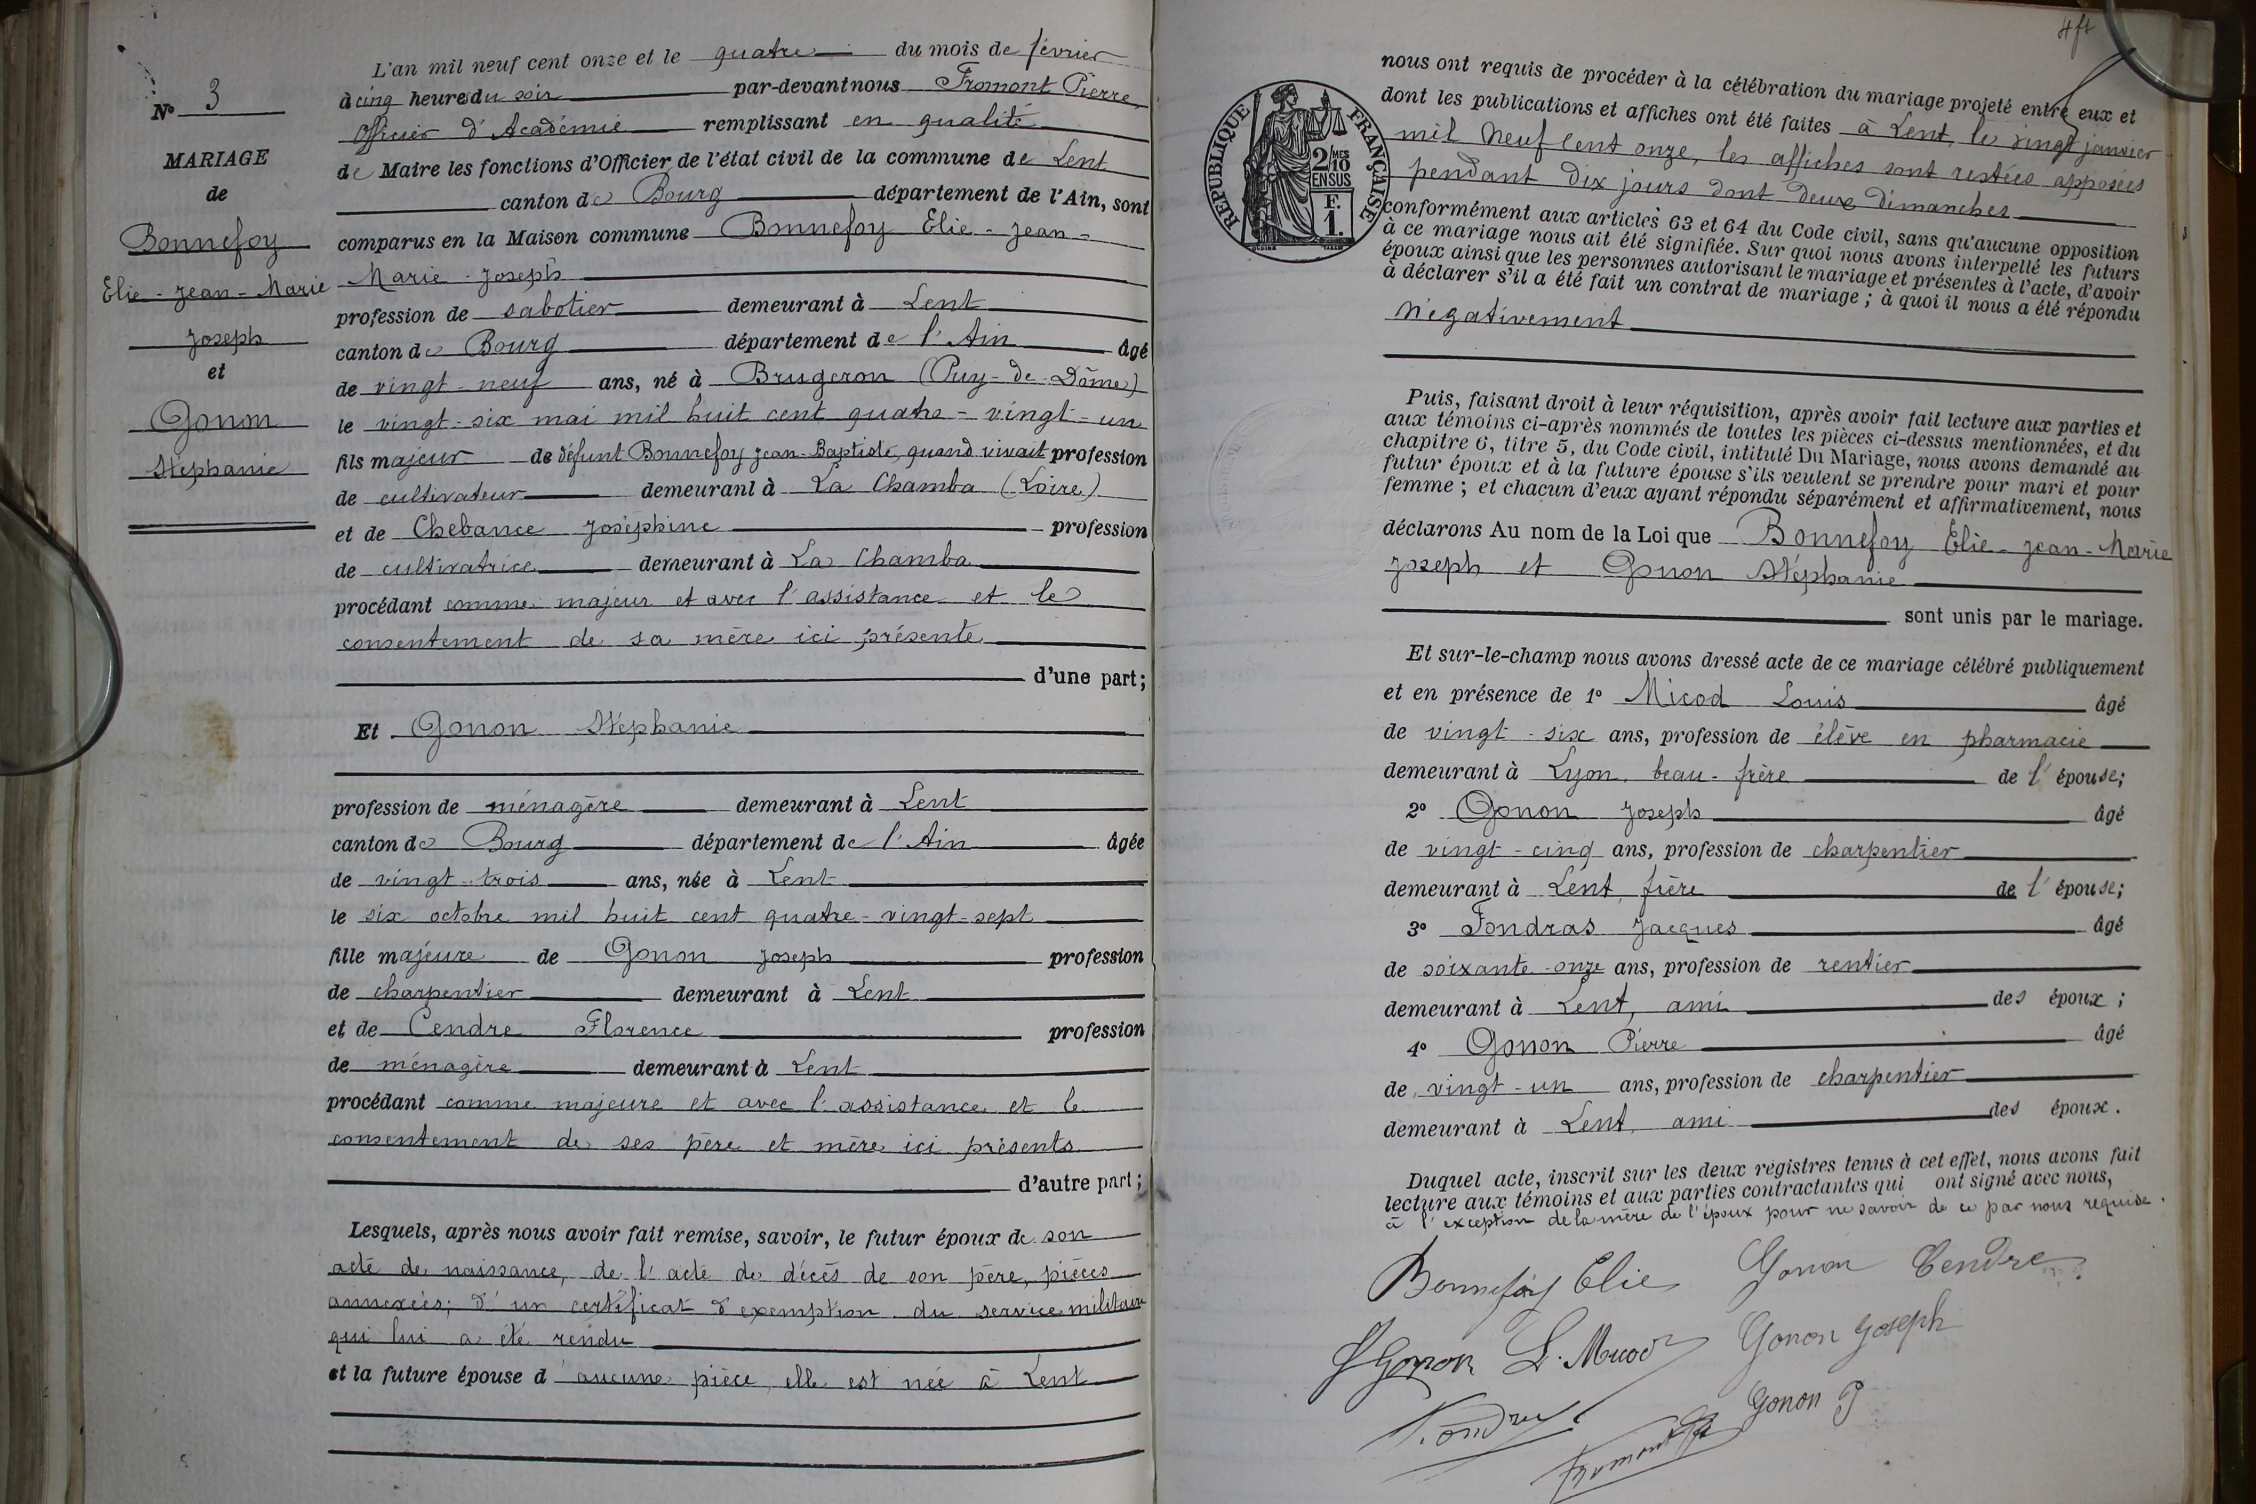 N° 3
MARIAGE
de
Bonnefoy
Elie-Jean-Marie
Joseph
et
Gonon
Stéphanie
L'an mil neuf cent onze et le quatre du mois de février
à cinq heures du soir par-devant nous Fromont Pierre
Officier d'Académie remplissant en qualité
de Maire les fonctions d'Officier de l'état civil de la commune de Lent
canton de Bourg département de l'Ain, sont
comparus en la Maison commune Bonnefoy Elie-Jean-
Marie-Joseph
profession de sabotier demeurant à Lent
canton de Bourg département de l'Ain âgé
de vingt-neuf ans, né à Brugeron (Puy-de-Dôme)
le vingt-six mai mil huit cent quatre-vingt-un
fils majeur de défunt Bonnefoy Jean-Baptiste, quand vivait profession
de cultivateur demeurant à La Chamba (Loire)
et de Chebance Joséphine profession
de cultivatrice demeurant à La Chamba
procédant comme majeur et avec l'assistance et le
consentement de sa mère ici présente
d'une part;
Et Gonon Stéphanie
profession de ménagère demeurant à Lent
canton de Bourg département de l'Ain âgée
de vingt-trois ans, née à Lent
le six octobre mil huit cent quatre-vingt-sept
fille majeure de Gonon Joseph profession
de charpentier demeurant à Lent
et de Cendre Florence profession
de ménagère demeurant à Lent
procédant comme majeure et avec l'assistance et le
consentement de ses père et mère ici présents
d'autre part;
Lesquels, après nous avoir fait remise, savoir, le futur époux de son
acte de naissance, de l'acte de décès de son père, pièces
annexées; d'un certificat d'exemption du service militaire
qui lui a été rendu
et la future épouse d'aucune pièce, elle est née à Lent
4ft
RÉPUBLIQUE FRANÇAISE
2/10 MES
EN SUS
F.
1.
nous ont requis de procéder à la célébration du mariage projeté entre eux et
dont les publications et affiches ont été faites à Lent, le vingt janvier
mil neuf cent onze, les affiches sont restées apposées
pendant dix jours dont deux dimanches
conformément aux articles 63 et 64 du Code civil, sans qu'aucune opposition
à ce mariage nous ait été signifiée. Sur quoi nous avons interpellé les futurs
époux ainsi que les personnes autorisant le mariage et présentes à l'acte, d'avoir
à déclarer s'il a été fait un contrat de mariage; à quoi il nous a été répondu
négativement
Puis, faisant droit à leur réquisition, après avoir fait lecture aux parties et
aux témoins ci-après nommés de toutes les pièces ci-dessus mentionnées, et du
chapitre 6, titre 5, du Code civil, intitulé Du Mariage, nous avons demandé au
futur époux et à la future épouse s'ils veulent se prendre pour mari et pour
femme; et chacun d'eux ayant répondu séparément et affirmativement, nous
déclarons Au nom de la Loi que Bonnefoy Elie-Jean-Marie
Joseph et Gonon Stéphanie
sont unis par le mariage.
Et sur-le-champ nous avons dressé acte de ce mariage célébré publiquement
et en présence de 1° Micod Louis âgé
de vingt-six ans, profession de élève en pharmacie
demeurant à Lyon, beau-frère de l'épouse;
2° Gonon Joseph âgé
de vingt-cinq ans, profession de charpentier
demeurant à Lent, frère de l'épouse;
3° Fondras Jacques âgé
de soixante-onze ans, profession de rentier
demeurant à Lent, ami des époux;
4° Gonon Pierre âgé
de vingt-un ans, profession de charpentier
demeurant à Lent, ami des époux.
Duquel acte, inscrit sur les deux registres tenus à cet effet, nous avons fait
lecture aux témoins et aux parties contractantes qui ont signé avec nous,
à l'exception de la mère de l'époux pour ne savoir de ce par nous requise.
Bonnefoy Elie Gonon Cendre
S Gonon L. Micod Gonon Joseph
Gonon P
Fromont